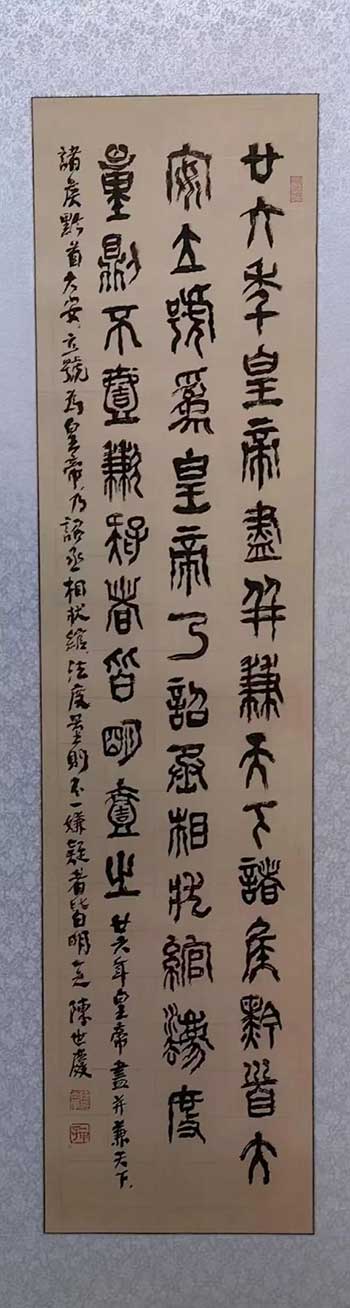 廿六年皇帝盡并兼天下諸侯黔首大
安立號爲皇帝乃詔丞相狀綰灋度
量則不壹歉疑者皆明壹之 廿六年皇帝盡并兼天下
諸侯黔首大安立號為皇帝乃詔丞相狀綰法度量則不一嫌疑者皆明一之 陳世慶